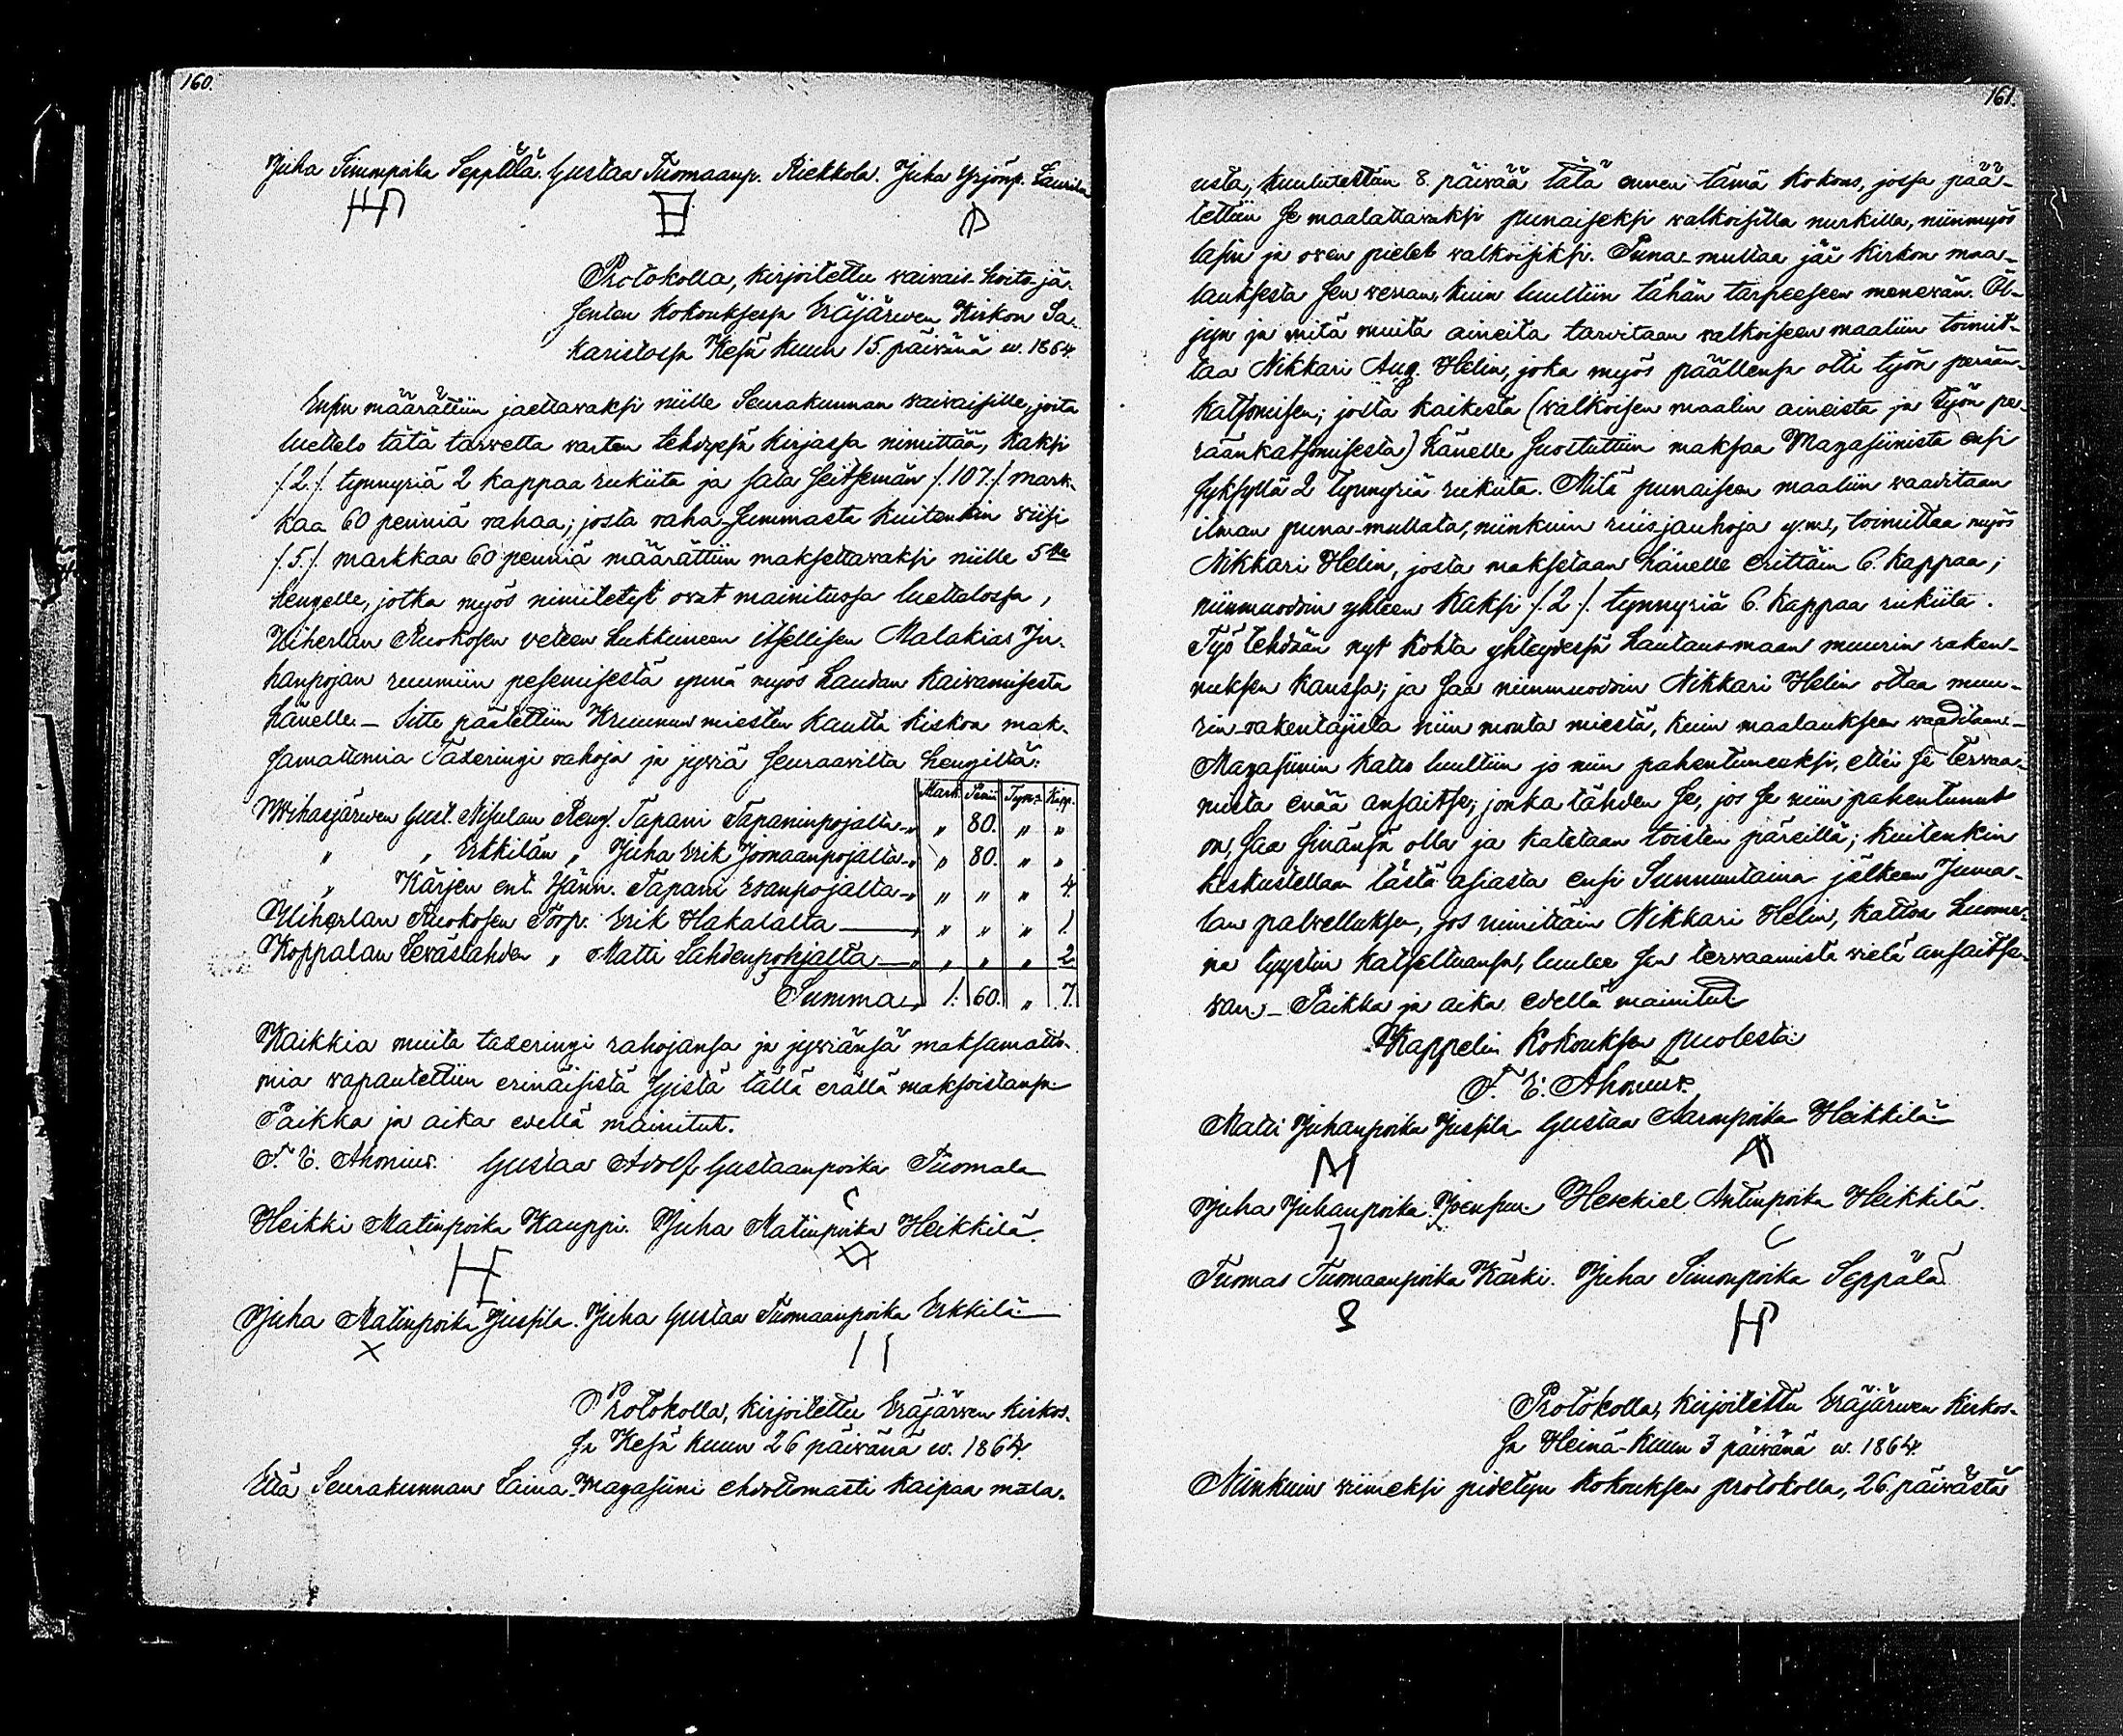 160.
Juha Simunpoika Seppälä. Gustaa Tuomaanp. Riekkola. Juha Yrjönp. Laurila
Protokolla, kirjoitettu waiwais-hoito-jä-
senten kokouksessa Eräjärwen Kirkon Sa-
karistossa Kesä kuun 15. päiwänä w. 1864.
Ensin määrättiin jaettawaksi niille Seurakunnan waiwaisille, joita
luettelo tätä tarwetta warten tehdyssä kirjassa nimittää, kaksi
/.2./. tynnyriä 2 kappaa rukiita ja sata seitsemän /.107./. mark-
kaa 60 penniä rahaa; josta raha-summasta kuitenkin wiisi
/.5./. markkaa 60 penniä määrättiin maksettawaksi niille 5lle
hengelle, jotka myös nimitetyt owat mainitussa luettelossa,
Uiherlan Ruokosen veteen hukkuneen itsellisen Malakias Ju-
hanpojan ruumiin pesemisestä ynnä myös haudan kaiwamisesta
hänelle. — Sitte päätettiin Kruunun miesten kautta kiskoa mak-
samattomia Taxeringi rahoja ja jywiä seuraawilta hengiltä:
Mark. Penni Tynr. Kapp.
Wihasjärwen Gust. Nisulan Reng. Tapani Tapaninpojalta „ „ 80. „ „
„ „ Erkkilän „ Juha Erik Joonaanpojalta „ „ 80. „ „
„ Kärjen ent. Isänn. Tapani Esanpojalta „ „ „ „ 4.
Uiherlan Ruokosen Torp. Erik Hakalalta — „ „ „ „ 1.
Koppalan Lewäslahden „ Matti Lahdenpohjalta — „ „ „ „ 2
Summa „ 1. 60. „ 7.
Kaikkia muita taxeringi rahojansa ja jywiänsä maksamatto-
mia wapautettiin erinäisistä syistä tällä erällä maksoistansa
Paikka ja aika edellä mainitut.
F. E. Ahonius. Gustaa Adolf Gustaanpoika Tuomala
Heikki Matinpoika Kauppi. Juha Matinpoika Heikkilä.
Juha Matinpoika Jussila. Juha Gustaa Tuomaanpoika Erkkilä
Protokolla, kirjoitettu Eräjärwen kirkos-
sa Kesä kuun 26 päiwänä w. 1864.
Että Seurakunnan Laina-Magasiini ehdottomasti kaipaa maala-
161.
usta, kuulutettiin 8. päiwää tätä ennen tämä kokous, jossa pää-
tettiin se maalattawaksi punaiseksi walkoisilla nurkilla, niinmyös
lasin ja owen pielet walkoisiksi. Puna-multaa jäi kirkon maa-
lauksesta sen werran, kuin luultiin tähän tarpeeseen menewän. Öl-
jyn ja mitä muita aineita tarwitaan walkoiseen maaliin toimit-
taa Nikkari Aug. Helin, joka myös päällensä otti työn perään-
katsomisen; josta kaikesta (walkoisen maalin aineista ja työn pe-
räänkatsomisesta) hänelle suostuttiin maksaa Magasiinista ensi
syksyllä 2 tynnyriä rukiita. Mitä punaiseen maaliin waaditaan
ilman puna-mullata, niinkuin ruisjauhoja y.m., toimittaa myös
Nikkari Helin, josta maksetaan hänelle erittäin 6. kappaa;
niinmuodoin yhteen kaksi /.2./. tynnyriä 6. kappaa rukiita.
Työ tehdään nyt kohta yhteydessä hautausmaan muurin raken-
nuksen kanssa; ja saa niinmuodoin Nikkari Helin ottaa muu-
rin-rakentajista niin monta miestä, kuin maalaukseen waaditaan.—
Magasiinin katto luultiin jo niin pahentuneeksi, ettei se terwaa-
mista enää ansaitse; jonka tähden se, jos se niin pahentunut
on, saa sinänsä olla ja katetaan toisten päreillä; kuitenkin
keskustellaan tästä asiasta ensi Sunnuntaina jälkeen Juma-
lan palwelluksen, jos nimittäin Nikkari Helin, katton huomen-
na tyystin katseltuansa, luulee sen terwaamista wielä ansaitse-
wan. — Paikka ja aika edellä mainitut
Kappelin kokouksen puolesta:
F. E. Ahonius.
Matti Juhanpoika Jussila Gustaa Aaronpoika Heikkilä
Juha Juhanpoika Joensuu. Hesekiel Antinpoika Heikkilä.
Tuomas Tuomaanpoika Kärki. Juha Simonpoika Seppälä
Protokolla, kirjoitettu Eräjärwen kirkos-
sa Heinä-kuun 3 päiwänä w. 1864.
Niinkuin wiimeksi pidetyn kokouksen protokolla, 26. päiwästä